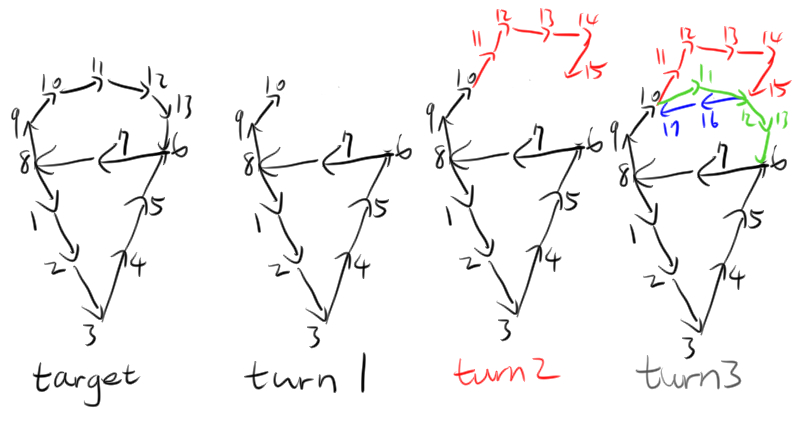 11
10
12
13
9
8
7
6
1
5
2
4
3
target
10
9
8
7
6
1
5
2
4
3
turn 1
12
13
14
11
15
10
9
8
7
6
1
5
2
4
3
turn2
12
13
14
11
11
15
10
16
12
13
17
9
8
7
6
1
5
2
4
3
turn3